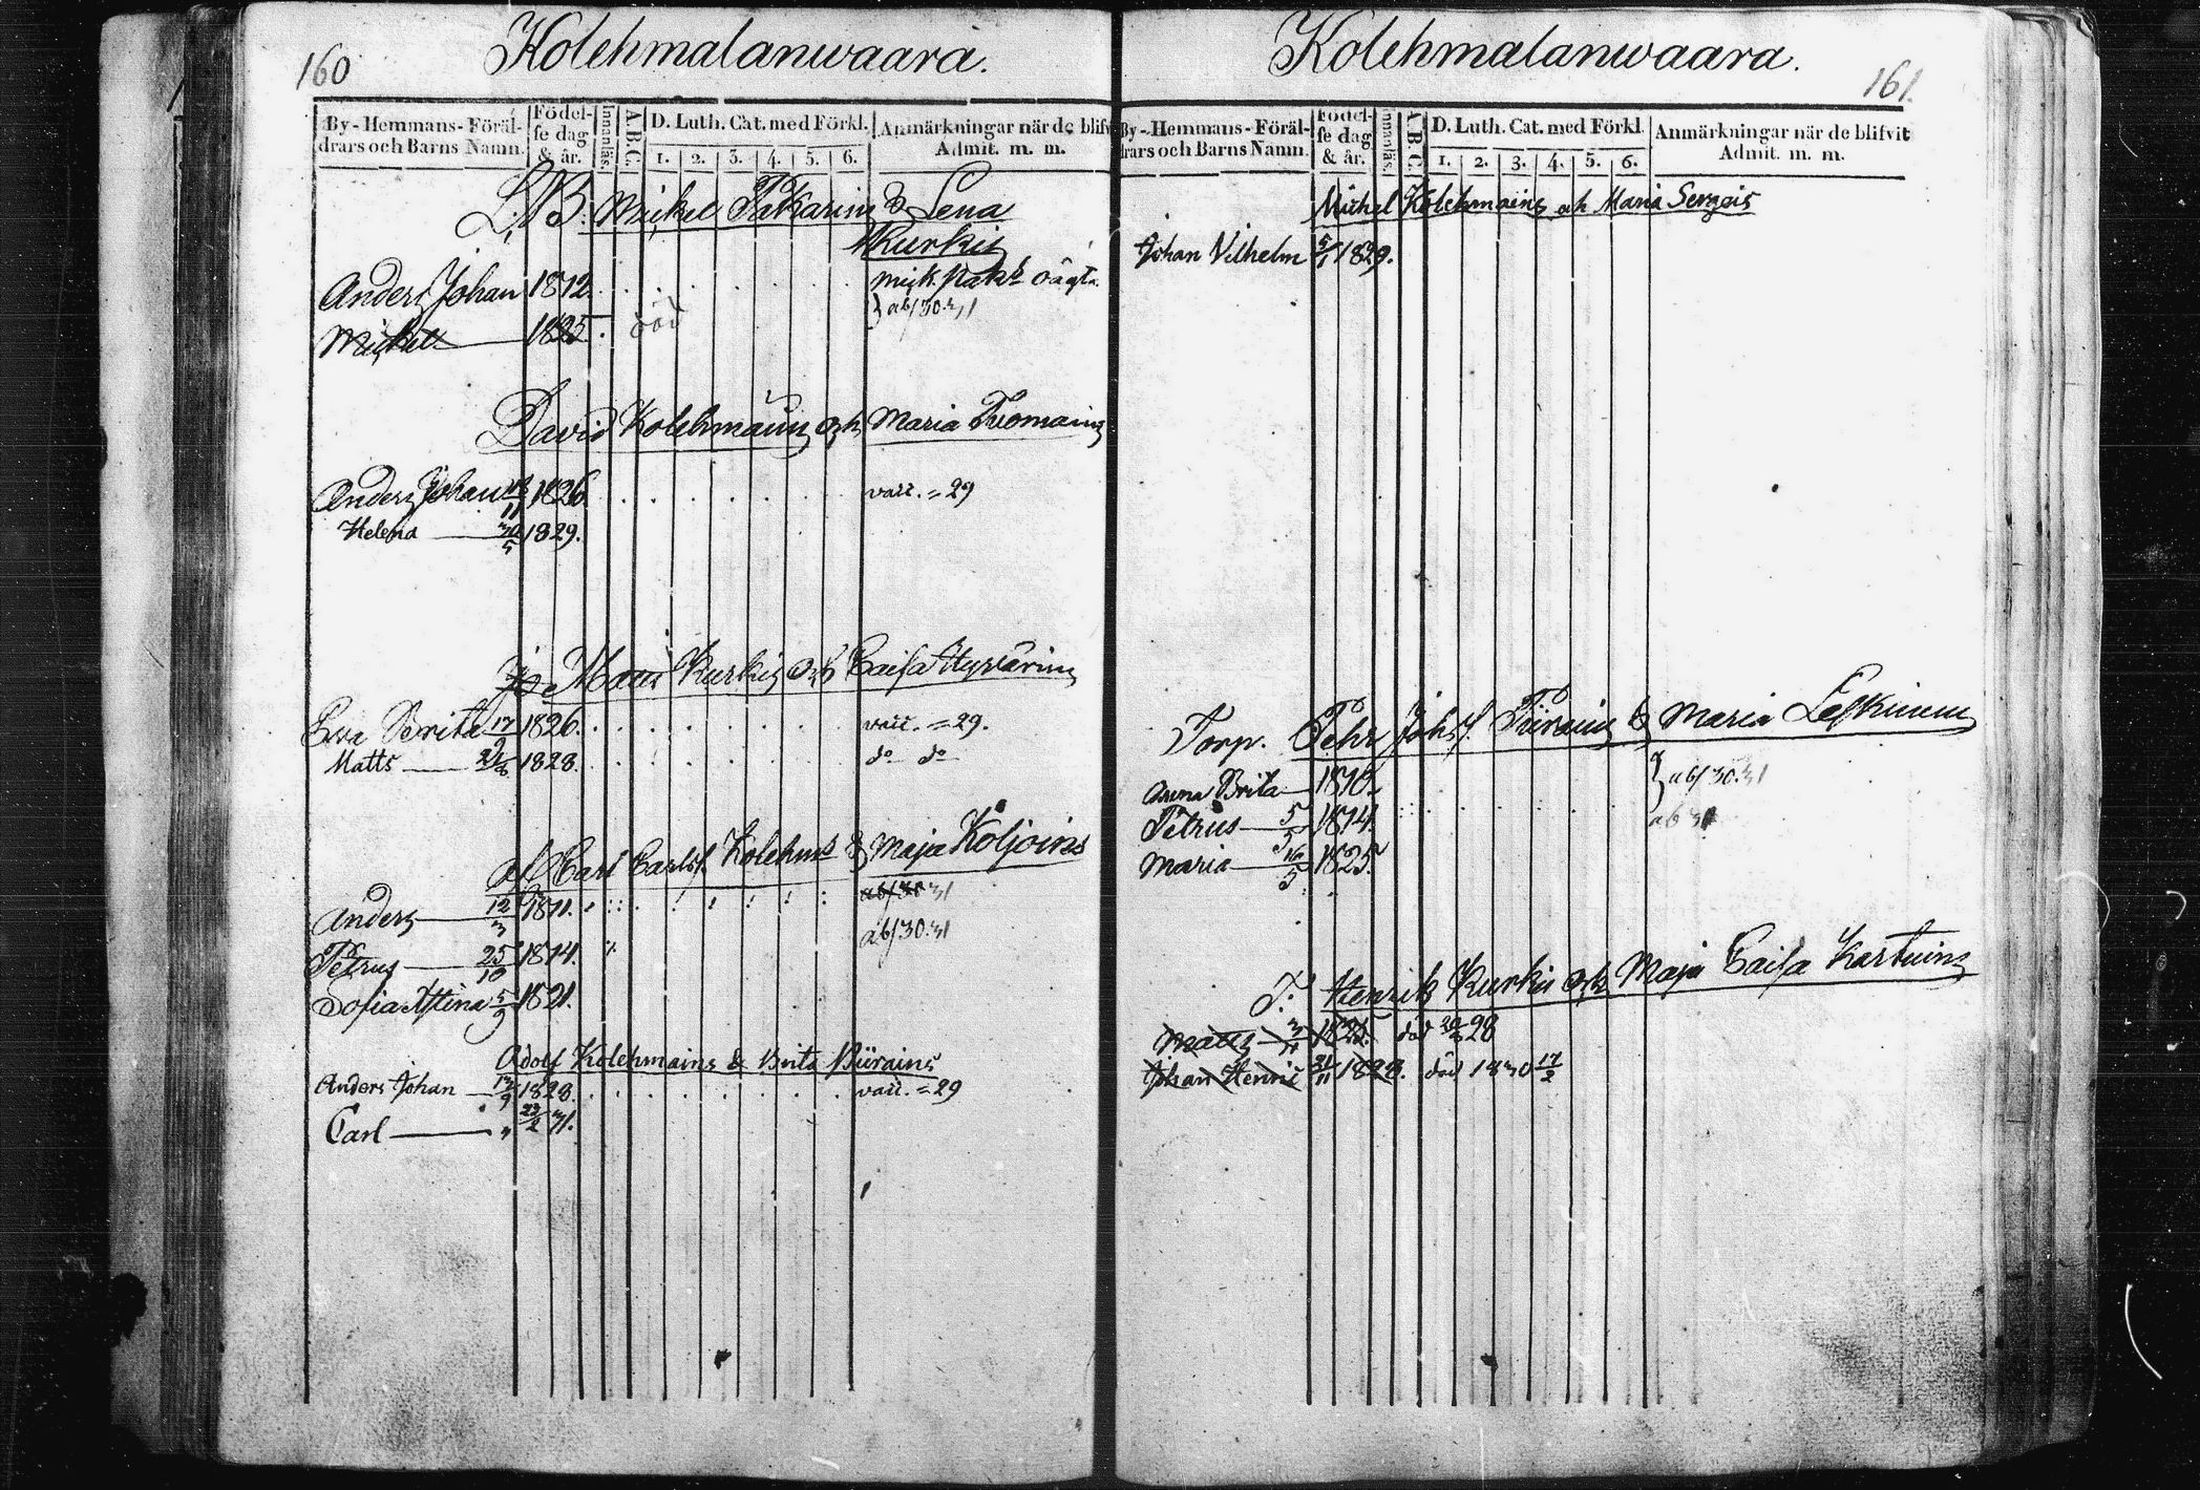 160
Kolehmalanwaara.
By-Hemmans-Föräl-
drars och Barns Namn.
Födel-
se dag
& år.
Innanläs.
A.B.C.
D. Luth. Cat. med Förkl.
1. 2. 3. 4. 5. 6.
Anmärkningar när de blifv
Admit. m. m.
Mickel Pakarin & Lena
Kurki
Anders Johan 1812.
Mickel 1825 död
ab/30.31
David Kolehmain och Maria Tuomain
Anders Johan 1826 vacc. = 29
Helena 30/5 1829.
Matts Kurki och Caisa Hyvärin
Eva Brita 17/9 1826. vacc. = 29.
Matts 1828. do do
Carl Carls. Kolehm & Maja Koljoin
Anders 12/3 1811. ab/30 31
Petrus 25/10 1814. ab/30.31
Sofia Stina 5/9 1821.
Adolf Kolehmains & Brita Piirains
Anders Johan 1828. vacc. = 29
Carl 23/2 31.
Kolehmalanwaara.
161.
By-Hemmans-Föräl-
drars och Barns Namn.
Födel-
se dag
& år.
Innanläs.
A.B.C.
D. Luth. Cat. med Förkl.
1. 2. 3. 4. 5. 6.
Anmärkningar när de blifvit
Admit. m. m.
Michel Kolehmains och Maria Sergeis
Johan Vilhelm 5/1 1829.
Torp. Pehr Johs. Piirain & Maria Leskinen
Anna Brita 1810. ab/30.31
Petrus 5/5 1814. ab 31
Maria 16/5 1825.
T. Henrik Kurki och Maja Caisa Kartuin
Matts 3/11 död 28
Johan Henric 21/11 1828. död 1830 17/2